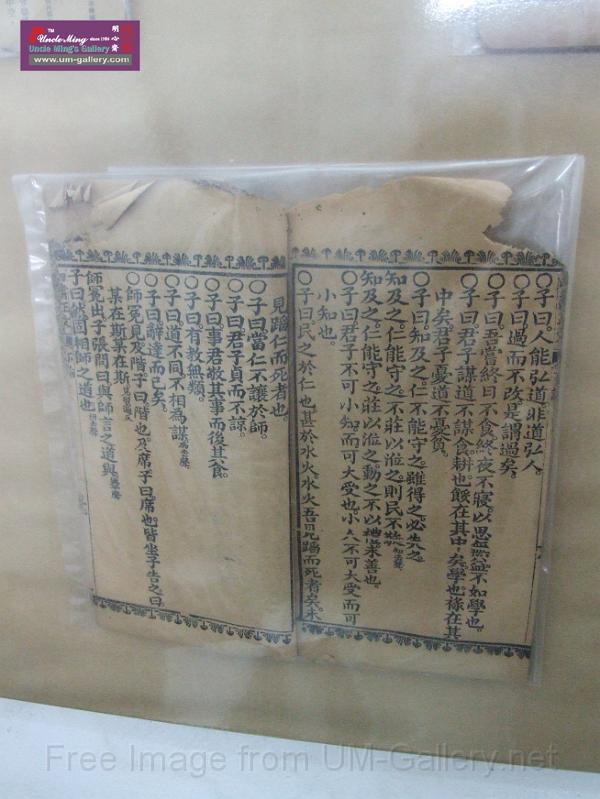 Uncle Ming since 1986
明心齋
Uncle Ming's Gallery
www.um-gallery.com
〇子曰。人能弘道。非道弘人。
〇子曰。過而不改。是謂過矣。
〇子曰。吾嘗終日不食。終夜不寢。以思。無益。不如學也。
〇子曰。君子謀道不謀食。耕也。餒在其中矣。學也。祿在其
中矣。君子憂道不憂貧。
〇子曰。知及之。仁不能守之。雖得之。必失之。
知及之。仁能守之。不莊以涖之。則民不敬。
知及之。仁能守之。莊以涖之。動之不以禮。未善也。
〇子曰。君子不可小知。而可大受也。小人不可大受。而可
小知也。
〇子曰。民之於仁也。甚於水火。水火吾見蹈而死者矣。未
見蹈仁而死者也。
〇子曰。當仁不讓於師。
〇子曰。君子貞而不諒。
〇子曰。事君敬其事而後其食。
〇子曰。有教無類。
〇子曰。道不同。不相為謀。
〇子曰。辭達而已矣。
師冕見。及階。子曰。階也。及席。子曰。席也。皆坐。子告之曰。
某在斯。某在斯。
師冕出。子張問曰。與師言之道與。
子曰。然。固相師之道也。
Free Image from UM-Gallery.net